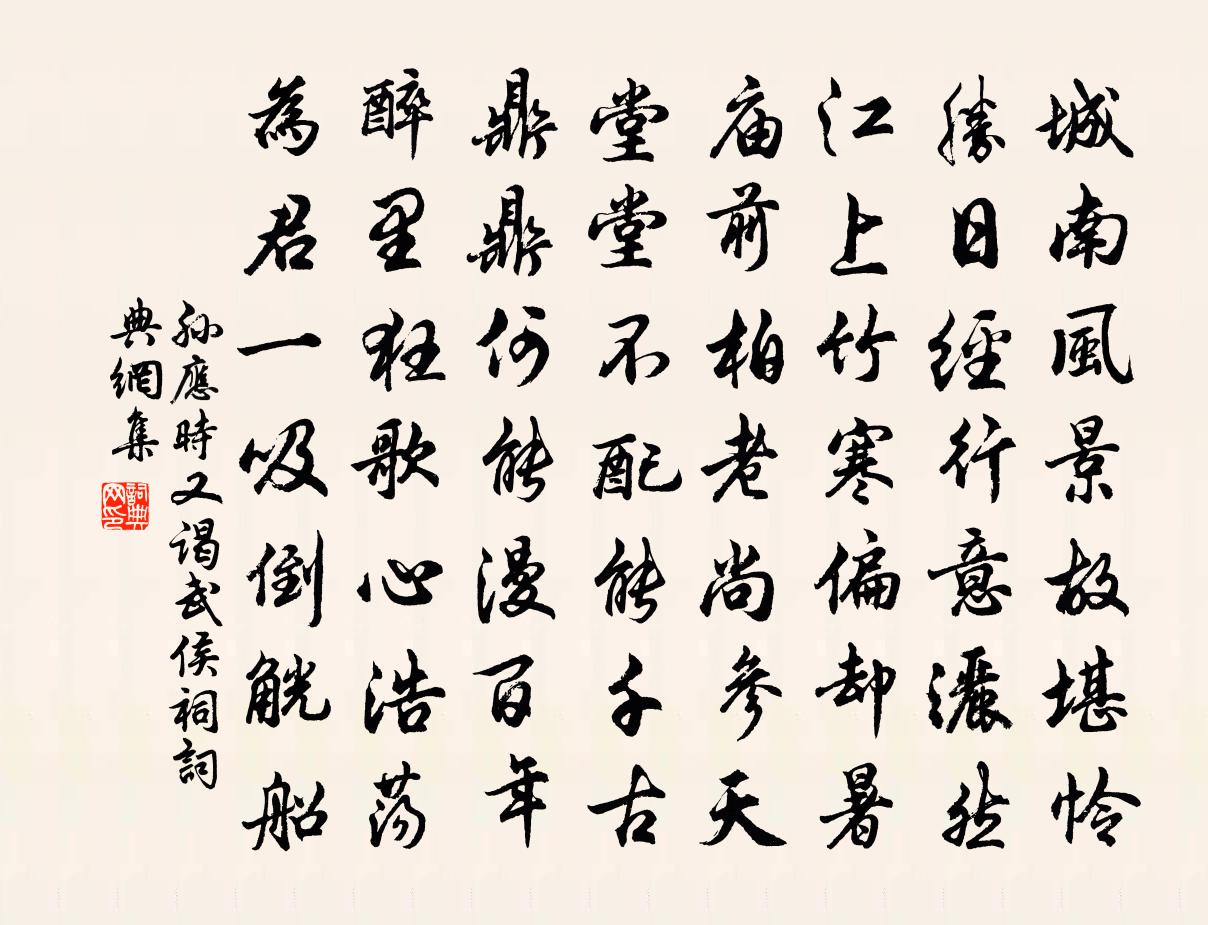 城南風景故堪怜
勝日經行意灑然
江上竹寒偏却暑
庙前柏老尚參天
堂堂不配能千古
鼎鼎何能漫百年
醉里狂歌心浩荡
為君一吸倒觥船
孙應時又谒武侯祠詞
典網集
詞典网印